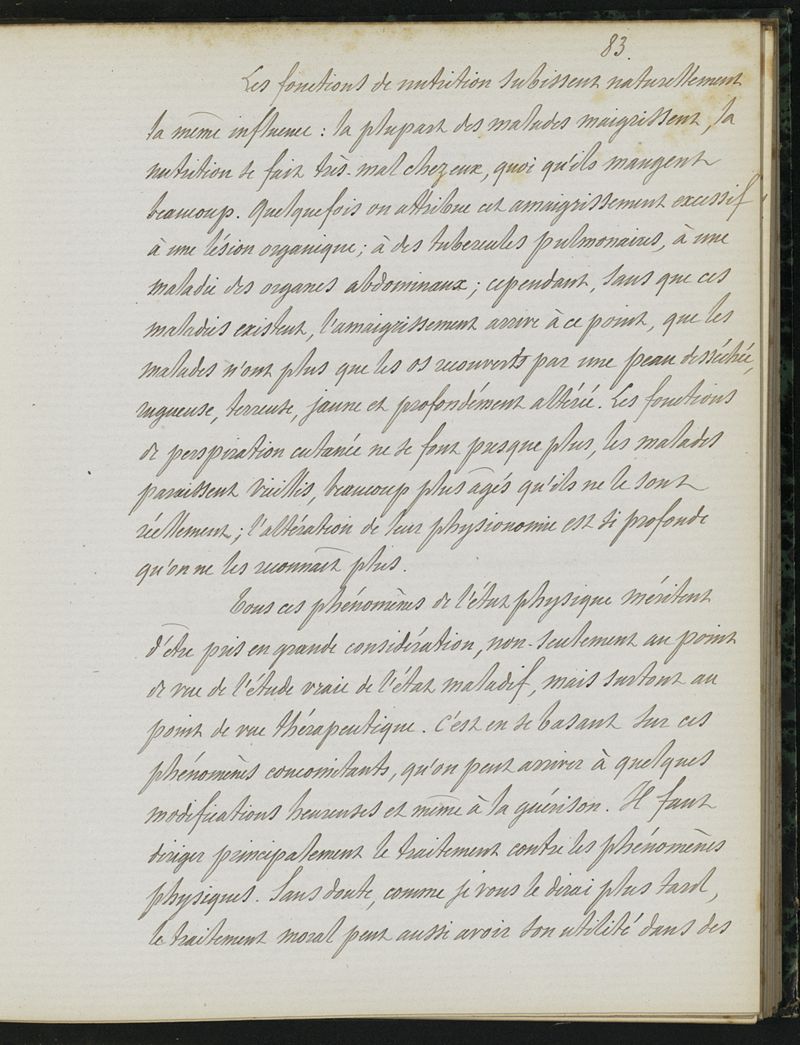 83.
Les fonctions de nutrition subissent naturellement
la même influence : la plupart des malades maigrissent, la
nutrition se fait très-mal chez eux, quoi qu'ils mangent
beaucoup. Quelquefois on attribue cet amaigrissement excessif
à une lésion organique ; à des tubercules pulmonaires, à une
maladie des organes abdominaux ; cependant, sans que ces
maladies existent, l'amaigrissement arrive à ce point, que les
malades n'ont plus que les os recouverts par une peau desséchée,
rugueuse, terreuse, jaune et profondément altérée. Les fonctions
de perspiration cutanée ne se font presque plus, les malades
paraissent vieillis, beaucoup plus âgés qu'ils ne le sont
réellement ; l'altération de leur physionomie est si profonde
qu'on ne les reconnaît plus.
Tous ces phénomènes de l'état physique méritent
d'être pris en grande considération, non-seulement au point
de vue de l'étude vraie de l'état maladif, mais surtout au
point de vue thérapeutique. C'est en se basant sur ces
phénomènes concomitants, qu'on peut arriver à quelques
modifications heureuses et même à la guérison. Il faut
diriger principalement le traitement contre les phénomènes
physiques. Sans doute, comme je vous le dirai plus tard,
le traitement moral peut aussi avoir son utilité dans des